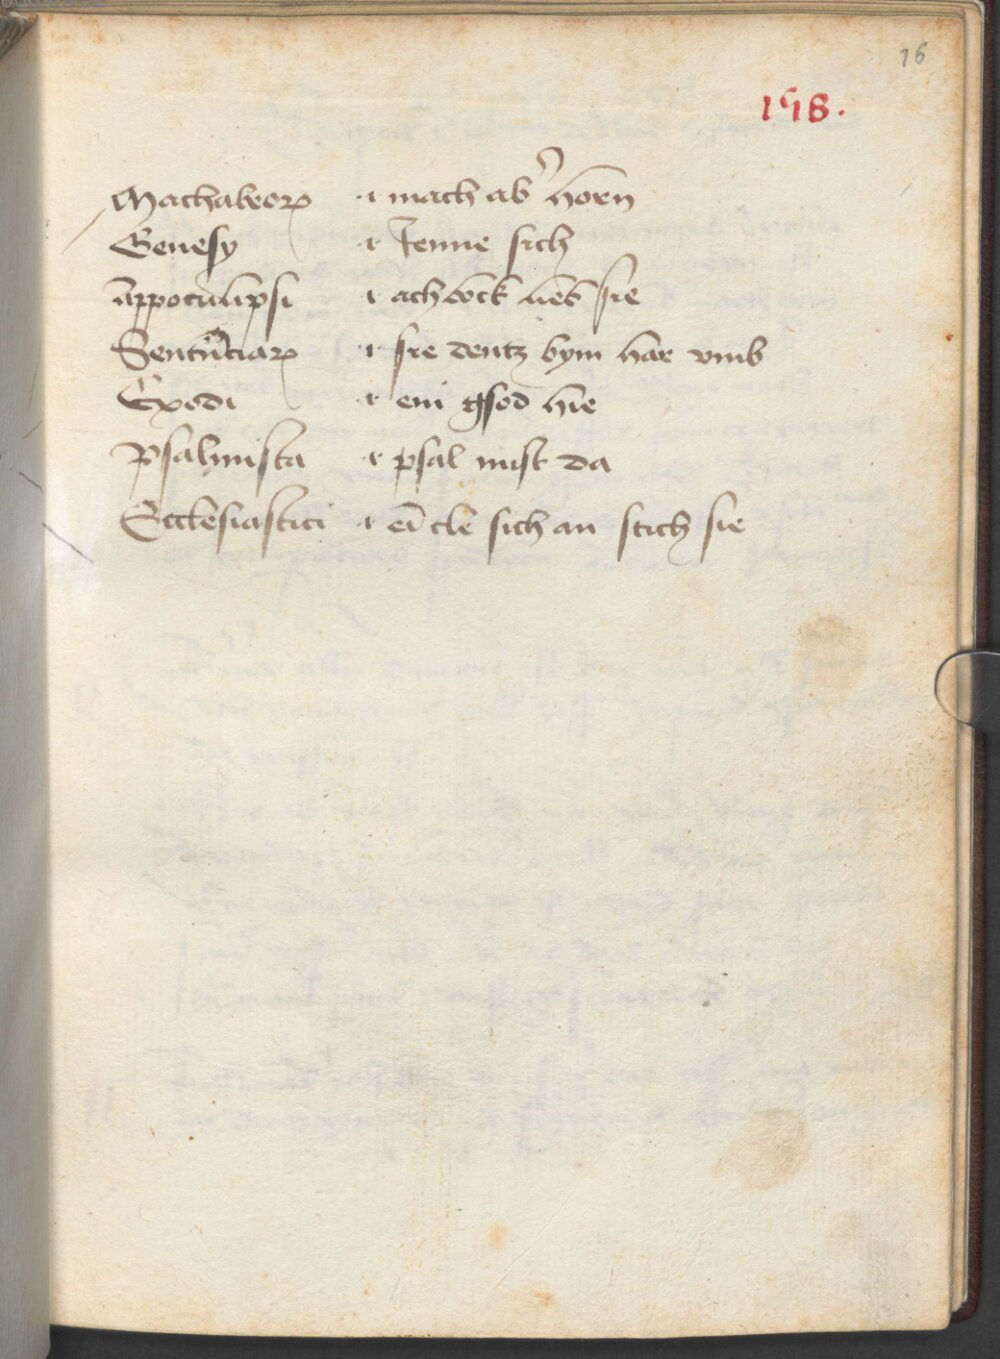 16
158.
Machabeoꝝ ·ı· mach ab' horn
Genesy ·ı· Jenne sich
appocalipsi ·ı· ach bock lieb sie
Sentētiaꝝ ·ı· sie dentz bym har vmb
Exodi ·ı· ein gsod hie
Psalmista ·ı· psal mist da
Ecclesiastici ·ı· ei cle sich an stich sie